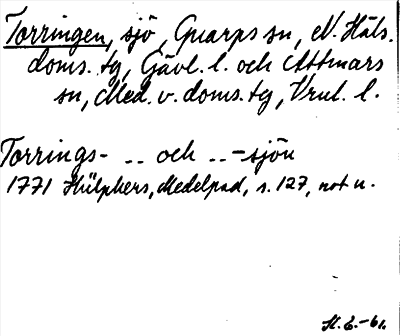 Torringen, sjö, Gnarps sn, N. Häls.
doms. tg, Gävl. l. och Attmars
sn, Med. v. doms. tg, Vrnl. l.
Torrings- .. och ..-sjön
1771 Hülphers, Medelpad, s. 127, not u.
St. E. -61.